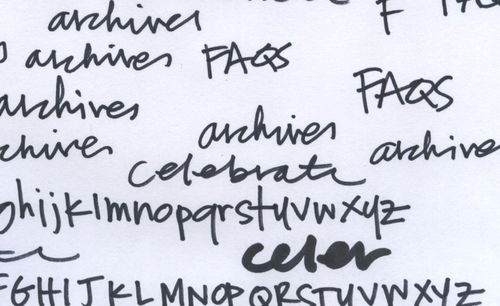 archives F
archives FAQS
archives FAQS
archives
chives archive
celebrate
ghijklmnopqrstuvwxyz
celer
FGHIJKLMNOPQRSTUVWXYZ